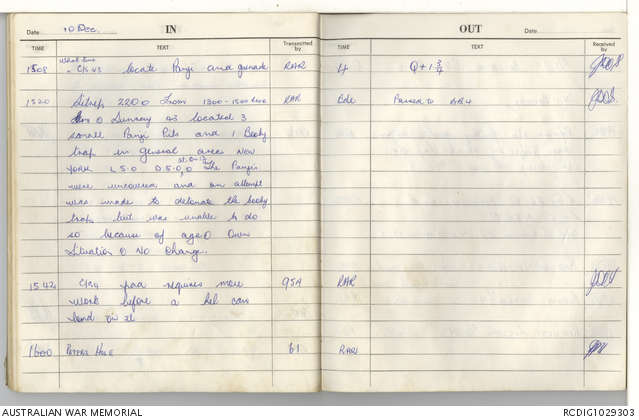 Date 10 Dec. IN
TIME TEXT Transmitted by
What time
1508 C/S 43 locate Panji and grenade RAR
1520 Sitrep 2200 from 1300-1500 RAR
O Sunray as located 3
small Panji Pits and 1 Booby
trap in general area NEW
YORK L 5.0 D 5.0, The Panjis
were uncovered and an attempt
was made to detonate the booby
trap but was unable to do
so because of age O Own
Situation O No Change.
1542 pad requires more 95A
work before a hel can
land
1600 Peters Hole 61
OUT
TEXT Received by
4 Q + 1 3/4
Bde Passed to
RAR
RAR
AUSTRALIAN WAR MEMORIAL RCDIG1029303